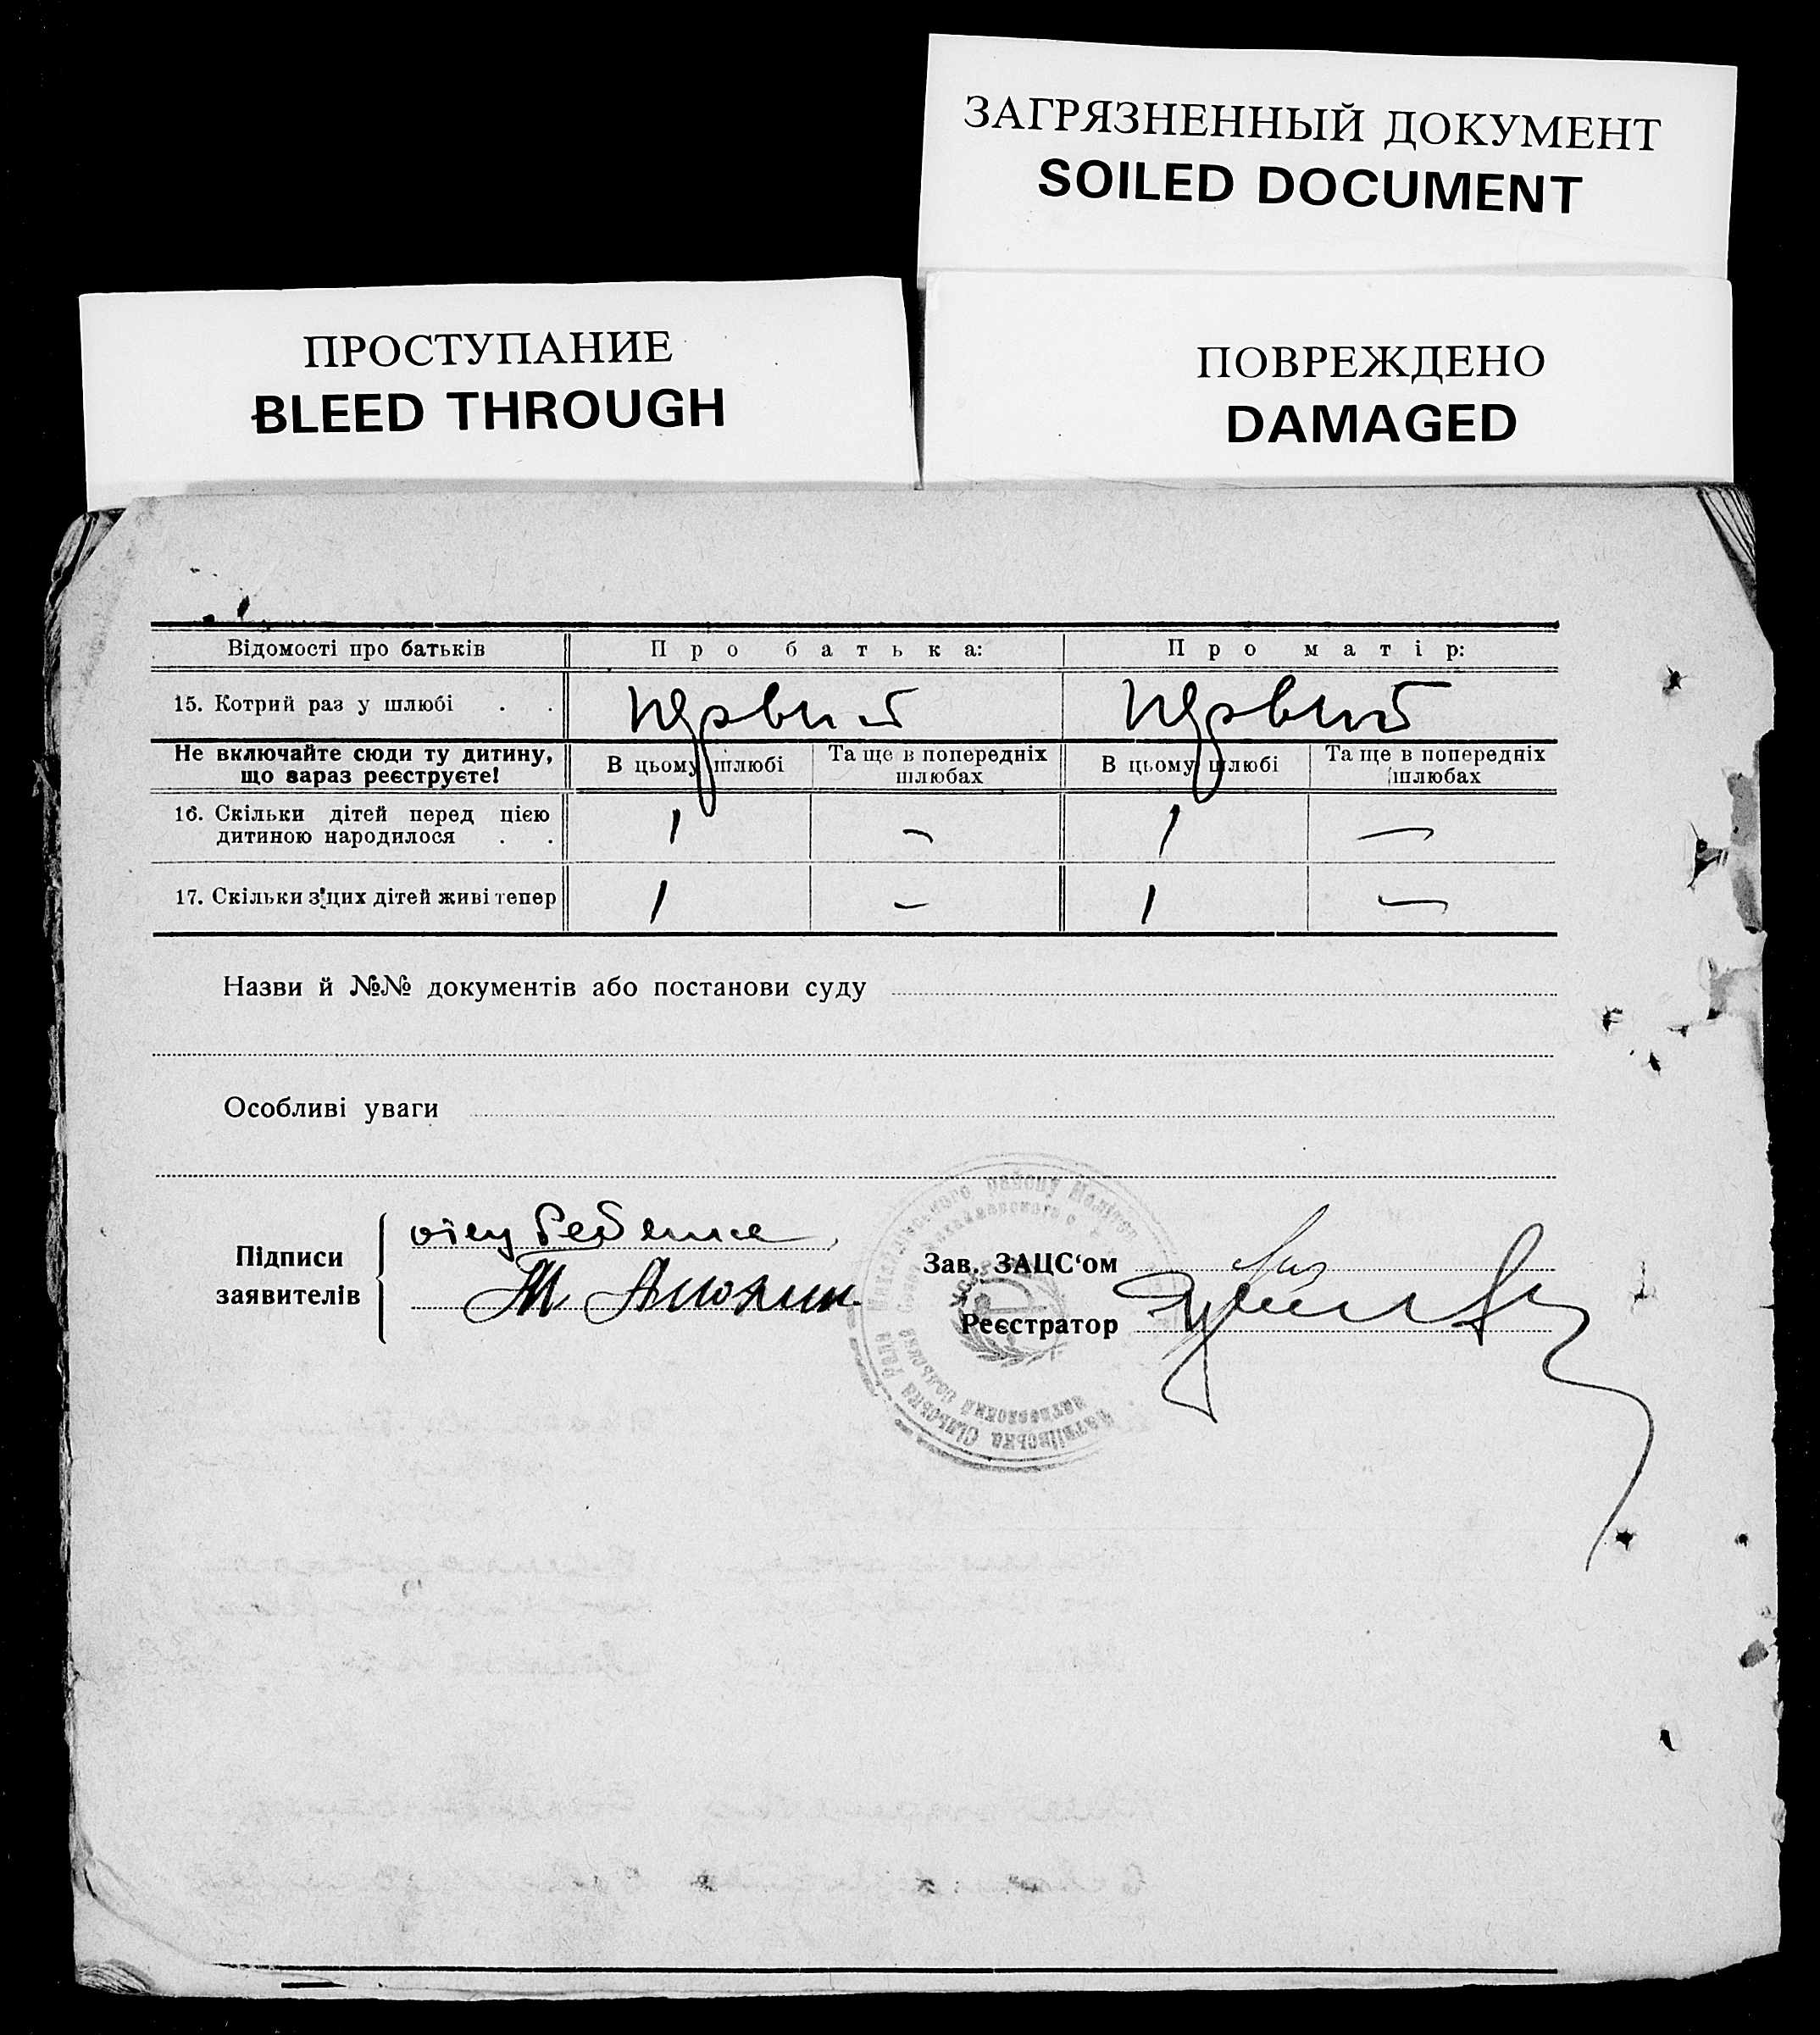 ЗАГРЯЗНЕННЫЙ ДОКУМЕНТ
SOILED DOCUMENT
ПРОСТУПАНИЕ
BLEED THROUGH
ПОВРЕЖДЕНО
DAMAGED
Відомості про батьків Про батька: Про матір:
15. Котрий раз у шлюбі . . первий первий
Не включайте сюди ту дитину, що зараз реєструєте! В цьому шлюбі Та ще в попередніх шлюбах В цьому шлюбі Та ще в попередніх шлюбах
16. Скільки дітей перед цією дитиною народилося . . 1 – 1 —
17. Скільки з цих дітей живі тепер 1 – 1 —
Назви й №№ документів або постанови суду
Особливі уваги
Підписи заявителів
Зав. ЗАЦС‘ом
Реєстратор
району
Сільська Рада